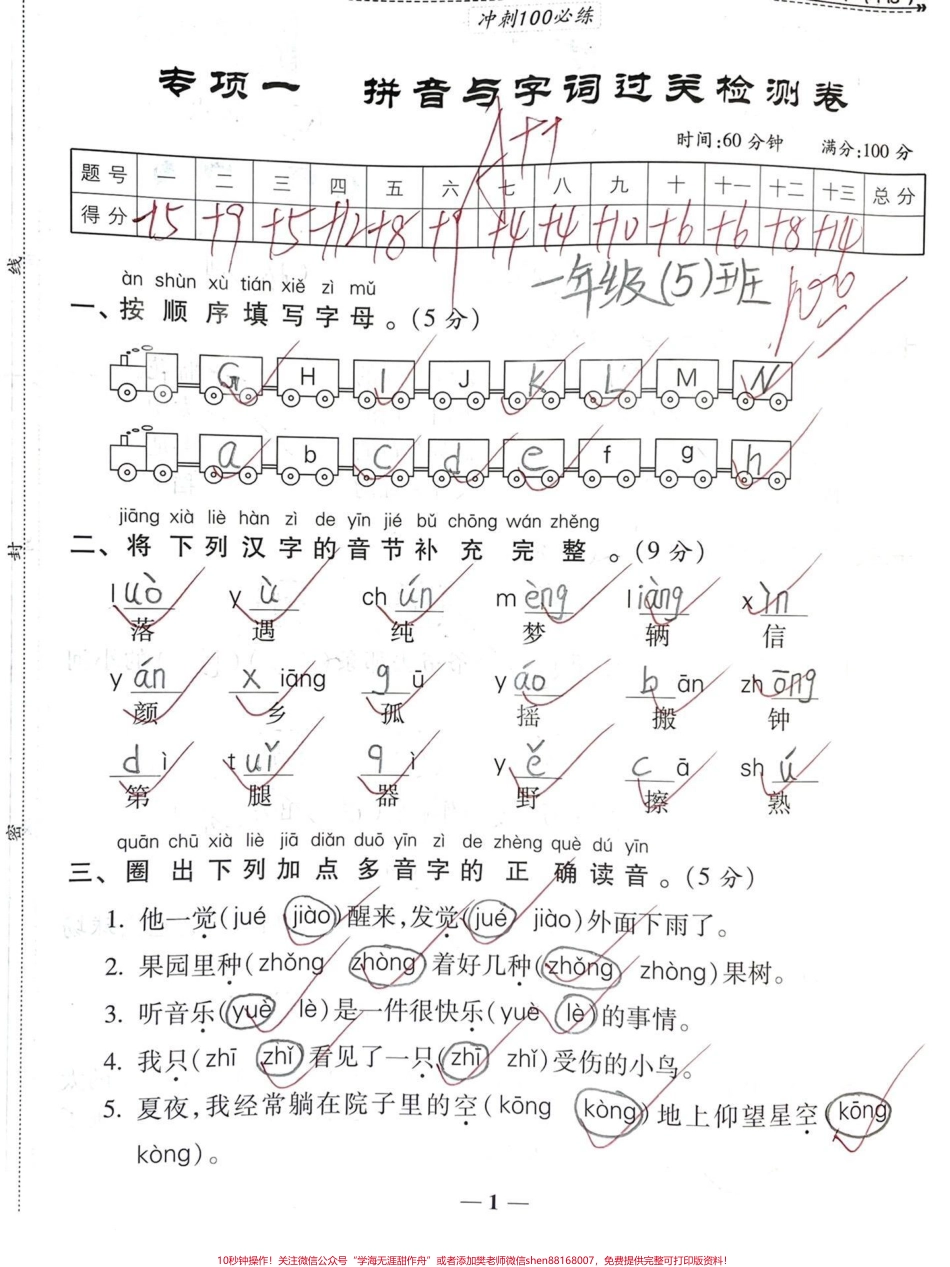 冲刺100必练
专项一 拼音与字词过关检测卷
+1
时间:60分钟 满分:100分
题号 一 二 三 四 五 六 七 八 九 十 十一 十二 十三 总分
得分 +5 +9 +5 +12 +8 +9 +4 +4 +10 +6 +6 +8 +14
一年级(5)班
100
àn shùn xù tián xiě zì mǔ
一、按顺序填写字母。(5分)
G H I J K L M N
a b c d e f g h
jiāng xià liè hàn zì de yīn jié bǔ chōng wán zhěng
二、将下列汉字的音节补充完整。(9分)
luò yù chún mèng liàng xìn
落 遇 纯 梦 辆 信
yán xiāng gū yáo bān zhōng
颜 乡 孤 摇 搬 钟
dì tuǐ qì yě cā shú
第 腿 器 野 擦 熟
quān chū xià liè jiā diǎn duō yīn zì de zhèng què dú yīn
三、圈出下列加点多音字的正确读音。(5分)
1. 他一觉(jué jiào)醒来,发觉(jué jiào)外面下雨了。
2. 果园里种(zhǒng zhòng)着好几种(zhǒng zhòng)果树。
3. 听音乐(yuè lè)是一件很快乐(yuè lè)的事情。
4. 我只(zhī zhǐ)看见了一只(zhī zhǐ)受伤的小鸟。
5. 夏夜,我经常躺在院子里的空(kōng kòng)地上仰望星空(kōng
kòng)。
— 1 —
线
封
密
10秒钟操作！关注微信公众号“学海无涯甜作舟”或者添加樊老师微信shen88168007，免费提供完整可打印版资料！